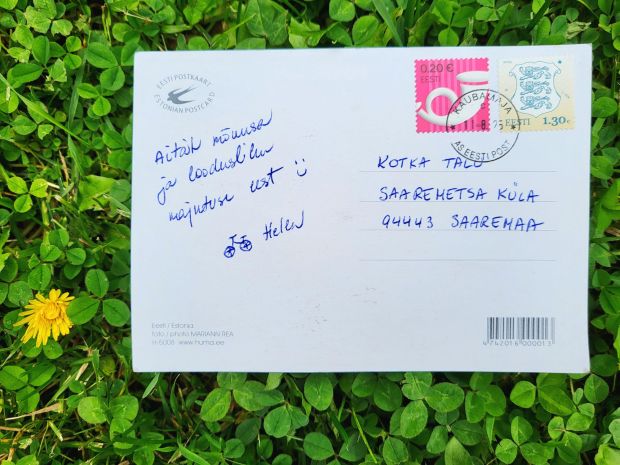 EESTI POSTKAART
ESTONIAN POSTCARD
0.20 €
EESTI
EESTI
1.30€
KAUBAMAJA
11.8.23
AS EESTI POST
Aitäh mõnusa
ja loodusliku
majutuse eest
Helen
KOTKA TALU
SAAREMETSA KÜLA
94443 SAAREMAA
Eesti / Estonia
foto / photo MARIANN REA
H-5008 www.huma.ee
4742016000013